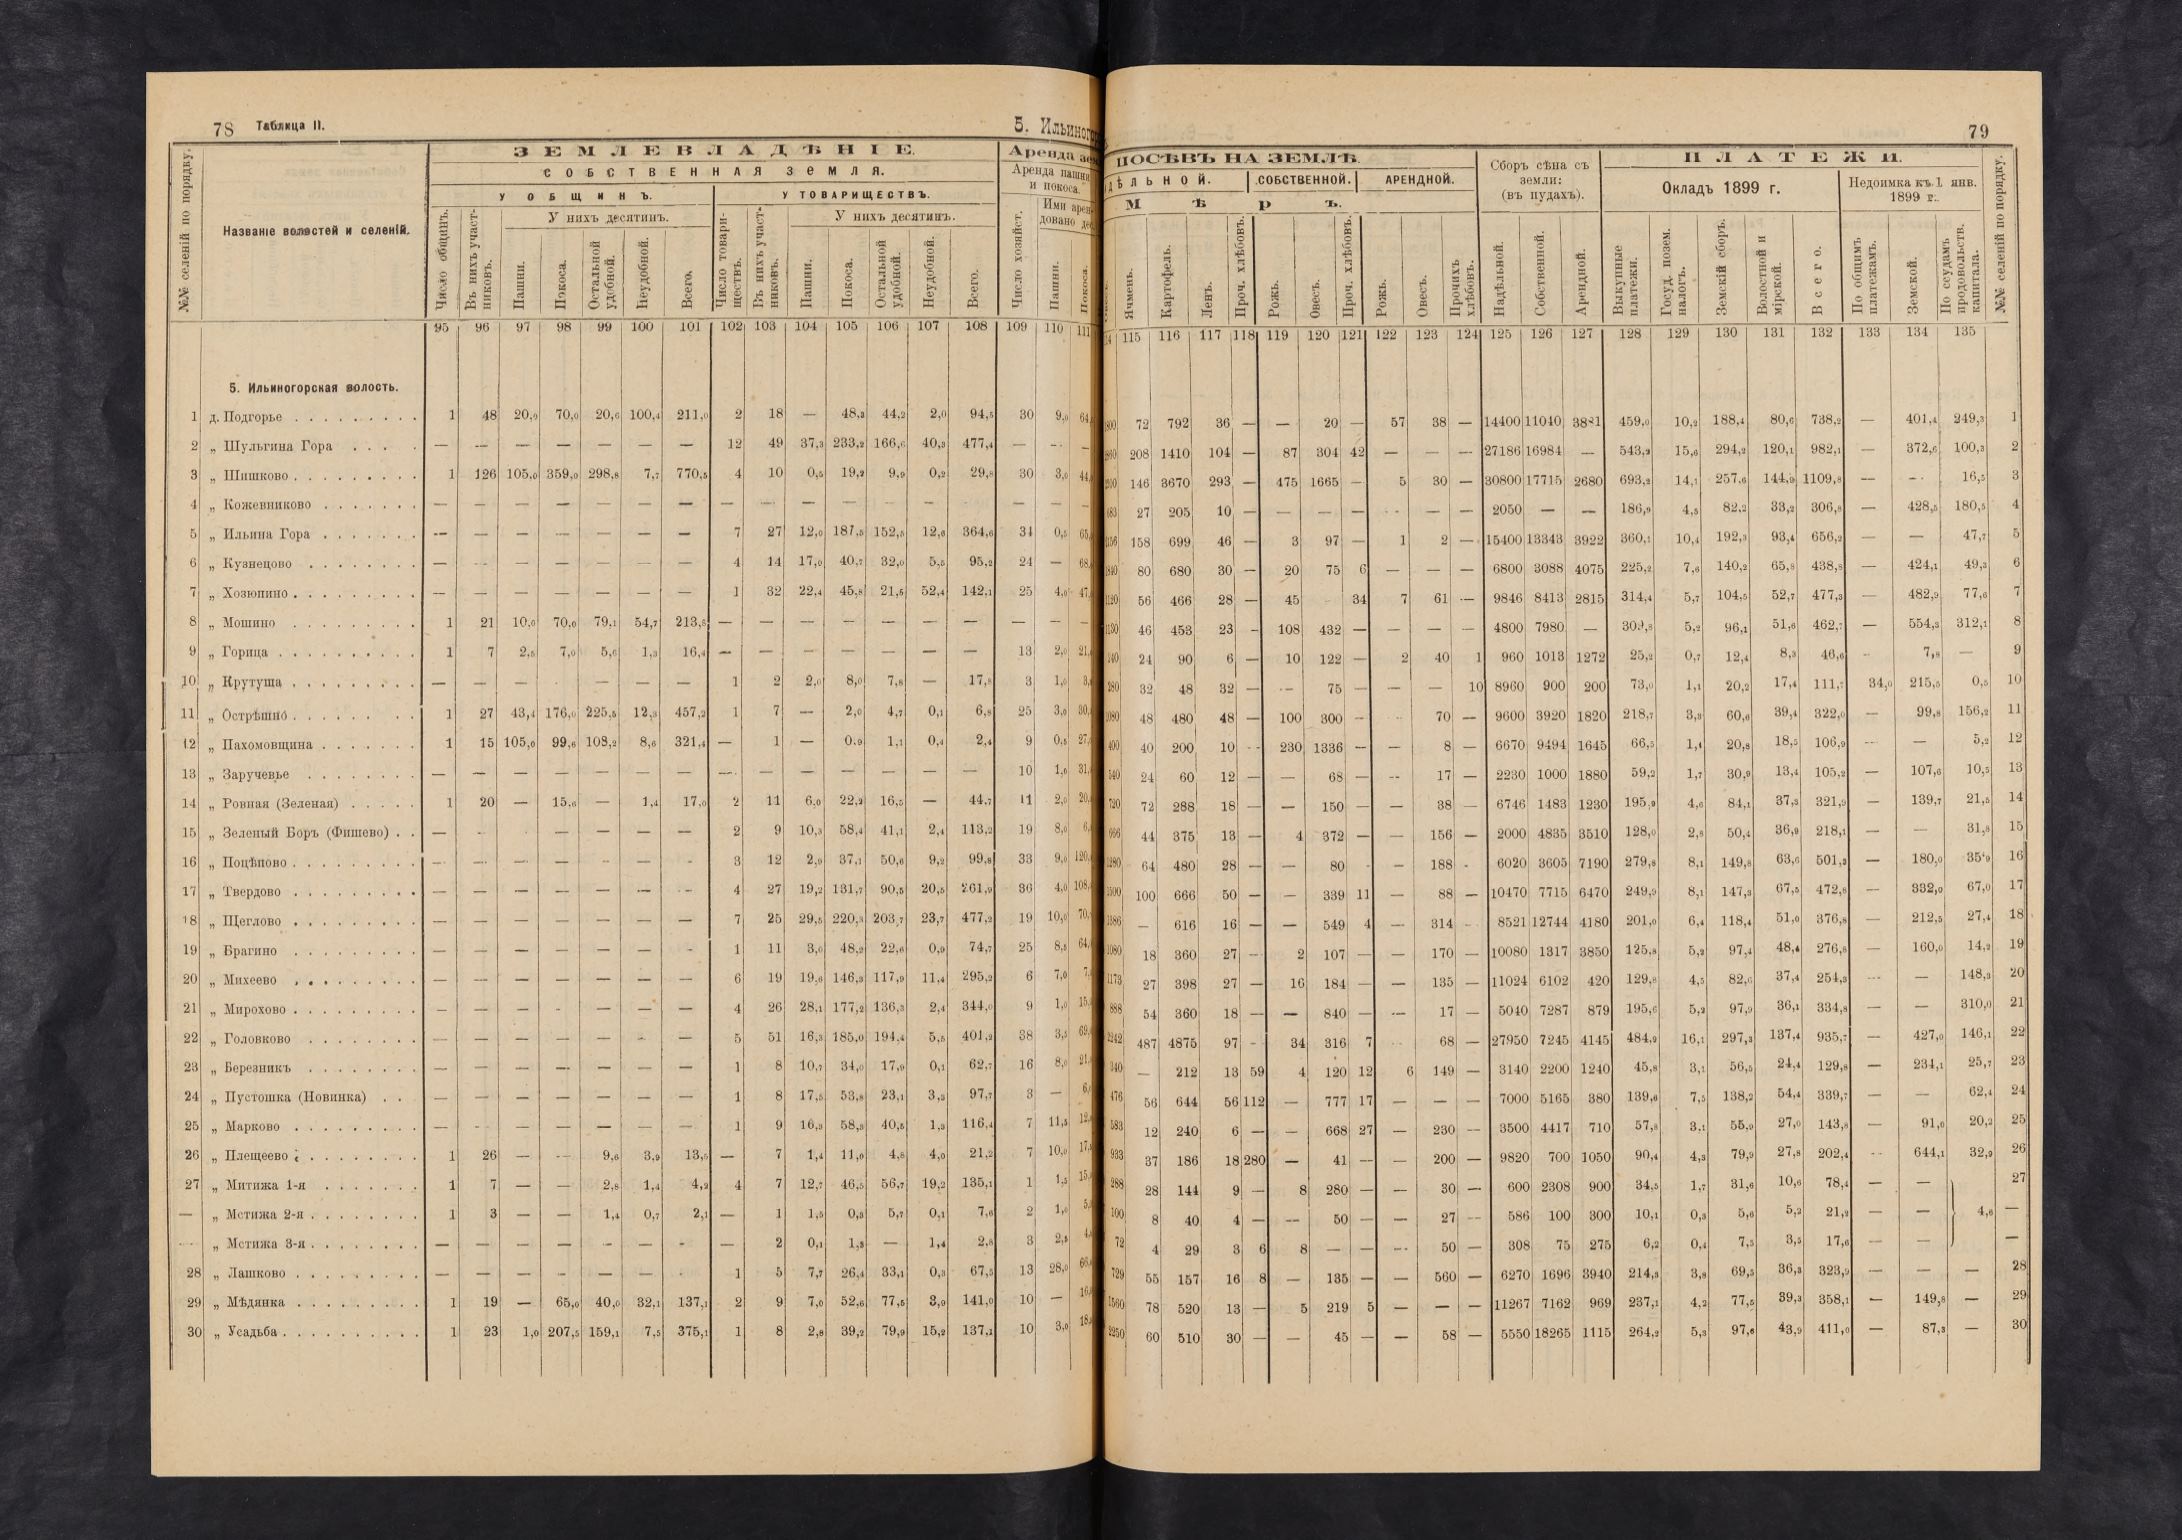 78 Таблица II.
5. Ильиногор
ЗЕМЛЕВЛАДѢНІЕ.
СОБСТВЕННАЯ ЗЕМЛЯ.
У ОБЩИНЪ.
У ТОВАРИЩЕСТВЪ.
У нихъ десятинъ.
У нихъ десятинъ.
Аренда пашни и покоса.
№№ селеній по порядку.
Названіе волостей и селеній.
Число общинъ.
Въ нихъ участниковъ.
Пашни.
Покоса.
Остальной удобной.
Неудобной.
Всего.
Число товариществъ.
Въ нихъ участниковъ.
Пашни.
Покоса.
Остальной удобной.
Неудобной.
Всего.
Число хозяйст.
Пашни.
Покоса.
95 96 97 98 99 100 101 102 103 104 105 106 107 108 109 110 111
5. Ильиногорская волость.
1 д. Подгорье 1 48 20,9 70,0 20,6 100,4 211,0 2 18 — 48,3 44,2 2,0 94,5 30 9,0
2 „ Шульгина Гора — — — — — — — 12 49 37,3 233,2 166,6 40,3 477,4 — — —
3 „ Шишково 1 126 105,0 359,0 298,8 7,7 770,5 4 10 0,5 19,2 9,9 0,2 29,8 30 3,0
4 „ Кожевниково — — — — — — — — — — — — — — — — —
5 „ Ильина Гора — — — — — — — 7 27 12,0 187,5 152,5 12,6 364,6 34 0,5
6 „ Кузнецово — — — — — — — 4 14 17,0 40,7 32,0 5,5 95,2 24 —
7 „ Хозюпино — — — — — — — 1 32 22,4 45,8 21,5 52,4 142,1 25 4,0
8 „ Мошино 1 21 10,0 70,0 79,1 54,7 213,8 — — — — — — — — — —
9 „ Горица 1 7 2,5 7,0 5,6 1,3 16,4 — — — — — — — 13 2,0
10 „ Крутуша — — — — — — — 1 2 2,0 8,0 7,8 — 17,8 3 1,0
11 „ Острѣшно 1 27 43,4 176,0 225,5 12,3 457,2 1 7 — 2,0 4,7 0,1 6,8 25 3,0
12 „ Пахомовщина 1 15 105,0 99,6 108,2 8,6 321,4 — 1 — 0,9 1,1 0,4 2,4 9 0,5
13 „ Заручевье — — — — — — — — — — — — — — 10 1,0
14 „ Ровная (Зеленая) 1 20 — 15,6 — 1,4 17,0 2 11 6,0 22,2 16,5 — 44,7 11 2,0
15 „ Зеленый Боръ (Фишево) — — — — — — — 2 9 10,3 58,4 41,1 2,4 113,2 19 8,0
16 „ Поцѣпово — — — — — — — 3 12 2,9 37,1 50,6 9,2 99,8 33 9,0
17 „ Твердово — — — — — — — 4 27 19,2 131,7 90,5 20,5 261,9 36 4,0
18 „ Щеглово — — — — — — — 7 25 29,5 220,3 203,7 23,7 477,2 19 10,0
19 „ Брагино — — — — — — — 1 11 3,0 48,2 22,6 0,9 74,7 25 8,5
20 „ Михеево — — — — — — — 6 19 19,6 146,3 117,9 11,4 295,2 6 7,0
21 „ Мирохово — — — — — — — 4 26 28,1 177,2 136,3 2,4 344,0 9 1,0
22 „ Головково — — — — — — — 5 51 16,3 185,0 194,4 5,5 401,2 38 3,5
23 „ Березникъ — — — — — — — 1 8 10,7 34,0 17,9 0,1 62,7 16 8,0
24 „ Пустошка (Новинка) — — — — — — — 1 8 17,5 53,8 23,1 3,3 97,7 3 —
25 „ Марково — — — — — — — 1 9 16,3 58,3 40,5 1,3 116,4 7 11,5
26 „ Плещеево 1 26 — — 9,6 3,9 13,5 — 7 1,4 11,0 4,8 4,0 21,2 7 10,0
27 „ Митижа 1-я 1 7 — — 2,8 1,4 4,2 4 7 12,7 46,5 56,7 19,2 135,1 1 1,5
— „ Мстижа 2-я 1 3 — — 1,4 0,7 2,1 — 1 1,5 0,3 5,7 0,1 7,6 2 1,0
— „ Мстижа 3-я — — — — — — — — 2 0,1 1,3 — 1,4 2,8 3 2,5
28 „ Лашково — — — — — — — 1 5 7,7 26,4 33,1 0,3 67,5 13 28,0
29 „ Мѣдянка 1 19 — 65,0 40,0 32,1 137,1 2 9 7,0 52,6 77,5 3,9 141,0 10 —
30 „ Усадьба 1 23 1,0 207,5 159,1 7,5 375,1 1 8 2,8 39,2 79,9 15,2 137,1 10 3,0
79
ПОСѢВЪ НА ЗЕМЛѢ.
СОБСТВЕННОЙ. АРЕНДНОЙ.
Мѣръ.
Сборъ сѣна съ земли: (въ пудахъ).
ПЛАТЕЖИ.
Окладъ 1899 г.
Недоимка къ 1 янв. 1899 г.
Ячмень.
Картофель.
Ленъ.
Проч. хлѣбовъ.
Рожь.
Овесъ.
Проч. хлѣбовъ.
Рожь.
Овесъ.
Прочихъ хлѣбовъ.
Надѣльной.
Собственной.
Арендной.
Выкупные платежи.
Госуд. позем. налогъ.
Земскій сборъ.
Волостной и мірской.
Всего.
По общимъ платежамъ.
Земской.
По ссудамъ продовольств. капитала.
№№ селеній по порядку.
115 116 117 118 119 120 121 122 123 124 125 126 127 128 129 130 131 132 133 134 135
72 792 36 — — 20 — 57 38 — 14400 11040 3881 459,0 10,2 188,4 80,6 738,2 — 401,4 249,3 1
208 1410 104 — 87 304 42 — — — 27186 16984 — 543,2 15,6 294,2 120,1 982,1 — 372,6 100,3 2
146 3670 293 — 475 1665 — 5 30 — 30800 17715 2680 693,2 14,1 257,6 144,9 1109,8 — — 16,5 3
27 205 10 — — — — — — — 2050 — — 186,9 4,5 82,2 33,2 306,8 — 428,5 180,5 4
158 699 46 — 3 97 — 1 2 — 15400 13343 3922 360,1 10,4 192,3 93,4 656,2 — — 47,7 5
80 680 30 — 20 75 6 — — — 6800 3088 4075 225,2 7,6 140,2 65,8 438,8 — 424,1 49,3 6
56 466 28 — 45 34 7 61 — 9846 8413 2815 314,4 5,7 104,5 52,7 477,3 — 482,9 77,6 7
46 453 23 — 108 432 — — — — 4800 7980 — 309,8 5,2 96,1 51,6 462,7 — 554,3 312,1 8
24 90 6 — 10 122 — 2 40 1 960 1013 1272 25,2 0,7 12,4 8,3 46,6 — 7,8 — 9
32 48 32 — — 75 — — — 10 8960 900 200 73,0 1,1 20,2 17,4 111,7 34,0 215,5 0,5 10
48 480 48 — 100 300 — — 70 — 9600 3920 1820 218,7 3,3 60,6 39,4 322,0 — 99,8 156,2 11
40 200 10 — 230 1336 — — 8 — 6670 9494 1645 66,5 1,4 20,8 18,5 106,9 — — 5,2 12
24 60 12 — — 68 — — 17 — 2230 1000 1880 59,2 1,7 30,9 13,4 105,2 — 107,6 10,5 13
72 288 18 — — 150 — — 38 — 6746 1483 1230 195,9 4,6 84,1 37,3 321,9 — 139,7 21,5 14
44 375 13 — 4 372 — — 156 — 2000 4835 3510 128,0 2,8 50,4 36,9 218,1 — — 31,8 15
64 480 28 — — 80 — 188 - 6020 3605 7190 279,8 8,1 149,8 63,6 501,3 — 180,0 35,9 16
100 666 50 — — 339 11 — 88 — 10470 7715 6470 249,9 8,1 147,3 67,5 472,8 — 332,0 67,0 17
— 616 16 — — 549 4 — 314 - 8521 12744 4180 201,0 6,4 118,4 51,0 376,8 — 212,5 27,4 18
18 360 27 — 2 107 — — 170 — 10080 1317 3850 125,8 5,2 97,4 48,4 276,8 — 160,0 14,2 19
27 398 27 — 16 184 — — 135 — 11024 6102 420 129,8 4,5 82,6 37,4 254,3 — — 148,3 20
54 360 18 — — 840 — — 17 — 5040 7287 879 195,6 5,2 97,9 36,1 334,8 — — 310,0 21
487 4875 97 - 34 316 7 68 — 27950 7245 4145 484,9 16,1 297,3 137,4 935,7 — 427,0 146,1 22
— 212 13 59 4 120 12 6 149 — 3140 2200 1240 45,8 3,1 56,5 24,4 129,8 — 234,1 25,7 23
56 644 56 112 — 777 17 — — — 7000 5165 380 139,6 7,5 138,2 54,4 339,7 — — 62,4 24
12 240 6 — — 668 27 — 230 — 3500 4417 710 57,8 3,1 55,9 27,0 143,8 — 91,0 20,2 25
37 186 18 280 — 41 — — 200 — 9820 700 1050 90,4 4,3 79,9 27,8 202,4 — 644,1 32,9 26
28 144 9 — 8 280 — — 30 — 600 2308 900 34,5 1,7 31,6 10,6 78,4 — — 27
8 40 4 — — 50 — — 27 — 586 100 300 10,1 0,3 5,6 5,2 21,2 — — 4,6 —
4 29 3 6 8 — — — 50 — 308 75 275 6,2 0,4 7,5 3,5 17,6 — — —
55 157 16 8 — 135 — — 560 — 6270 1696 3940 214,3 3,8 69,5 36,3 323,9 — — — 28
78 520 13 — 5 219 5 — — — 11267 7162 969 237,1 4,2 77,5 39,3 358,1 — 149,8 — 29
60 510 30 — — 45 — — 58 — 5550 18265 1115 264,2 5,3 97,6 43,9 411,0 — 87,3 — 30